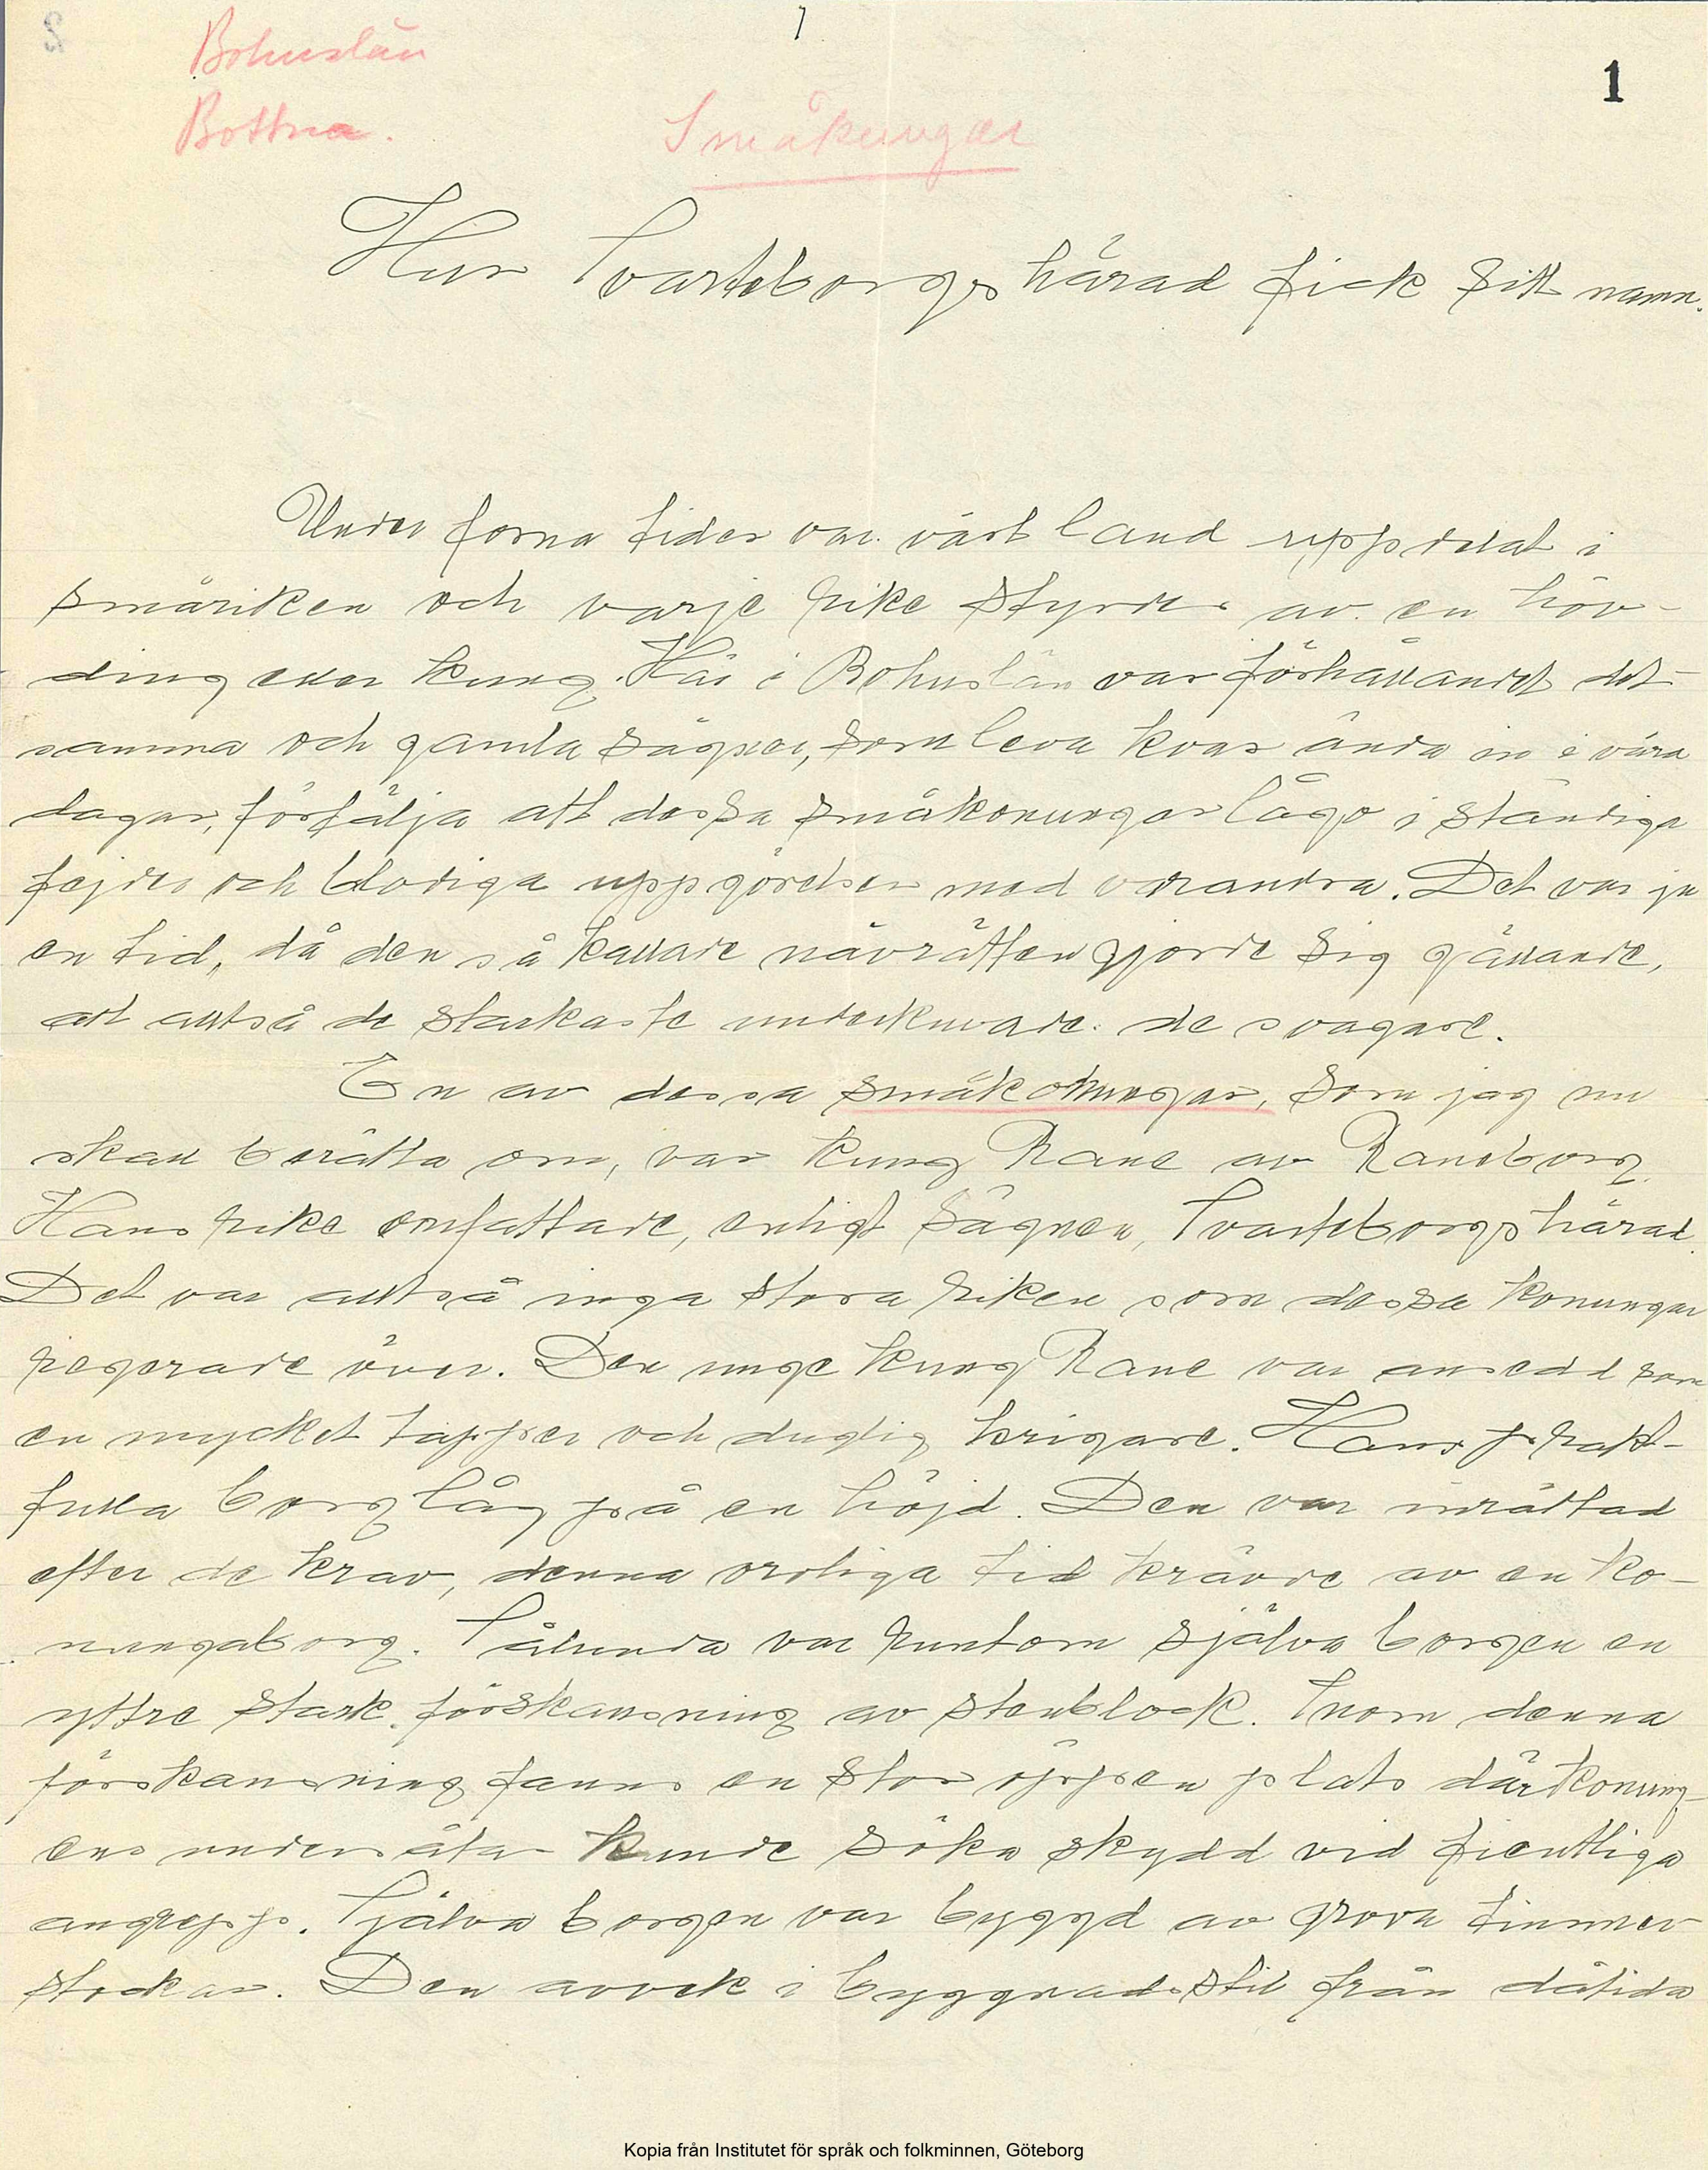 Bohuslän
1
1
Bottna.
Småkungar
Hur Svarteborgs härad fick sitt namn.
Under forna tider var vårt land uppdelat i
småriken och varje rike styrdes av en höv-
ding eller kung. Här i Bohuslän var förhållandet det-
samma och gamla sägner, som leva kvar ända in i våra
dagar, förtälja att dessa småkonungar lågo i ständiga
fejder och blodiga uppgörelser med varandra. Det var ju
en tid, då den så kallade nävrätten gjorde sig gällande,
att alltså de starkaste underkuvade de svagare.
En av dessa småkonungar, som jag nu
skall berätta om, var kung Rane av Raneborg.
Hans rike omfattade, enligt sägnen, Svarteborgs härad.
Det var alltså inga stora riken som dessa konungar
regerade över. Den unge kung Rane var ansedd som
en mycket tapper och duglig krigare. Hans prakt-
fulla borg låg på en höjd. Den var inrättad
efter de krav, denna oroliga tid krävde av en ko-
nungaborg. Sålunda var runtom själva borgen en
yttre stark förskansning av stenblock. Inom denna
förskansning fanns en stor öppen plats där konung-
ens undersåtar kunde söka skydd vid fientliga
angrepp. Själva borgen var byggd av grova timmer
stockar. Den avvek i byggnadsstil från dåtida
Kopia från Institutet för språk och folkminnen, Göteborg